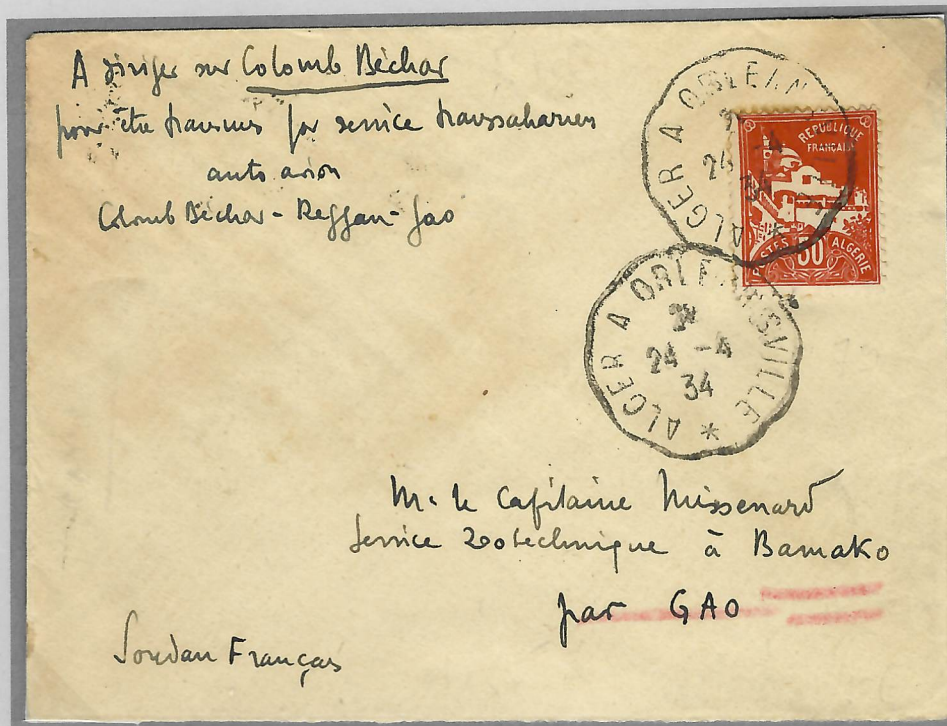 A diriger sur Colomb Béchar
pour être transmis par service transsaharien
auto avion
Colomb Béchar - Reggan - Gao
ALGER A ORLEAN
24 -4
34
REPUBLIQUE
FRANCAISE
POSTES 50 ALGERIE
ALGER A ORLEANSVILLE *
24 -4
34
M. le Capitaine Missenard
Service Zootechnique à Bamako
par GAO
Soudan Français